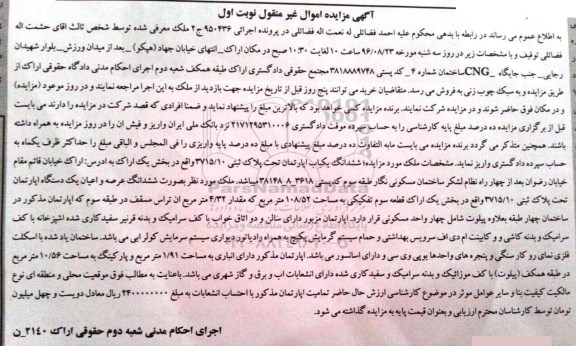 آگهی مزایده اموال غیر منقول نوبت اول
به اطلاع عموم می رساند در رابطه با بدهی محکوم علیه احمد فضائلی له نعمت اله فضائلی در پرونده اجرائی ۹۵۰۴۳۶ ج۲ ملک معرفی شده توسط شخص ثالث اقای حشمت اله
فضائلی توقیف و با مشخصات زیر در روز سه شنبه مورخه ۹۶/۰۸/۲۳ ساعت ۱۰ لغایت ۱۰:۳۰ صبح در مکان اراک_انتهای خیابان جهاد (هپکو) _بعد از میدان ورزش_بلوار شهیدان
رجایی_ جنب جایگاه CNG_ساختمان شماره ۴_کد پستی ۳۸۱۸۸۸۹۷۴۸ مجتمع حقوقی دادگستری اراک طبقه همکف شعبه دوم اجرای احکام مدنی دادگاه حقوقی اراک از
طریق مزایده و به سیک چوب زنی به فروش می رسد. متقاضیان خرید می توانند پنج روز قبل از تاریخ مزایده جهت بازدید از ملک به این اجرا مراجعه نمایند. و در روز موعود (مزایده)
و در مکان فوق حاضر شوند و در مزایده شرکت نمایند. برنده مزایده کسی خواهد بود که بالاترین مبلغ را پیشنهاد نماید و ضمنا افرادی که قصد شرکت در مزایده را دارند می بایست
قبل از برگزاری مزایده ده درصد مبلغ پایه کارشناسی را به حساب سپرده موقت دادگستری ۲۱۷۱۲۹۵۳۱۰۰۰۶ نزد بانک ملی ایران واریز و فیش ان را در روز مزایده به همراه داشته
باشند. همچنین متذکر می گردد برنده مزایده می بایست مابه التفاوت ده درصد مبلغ پیشنهادی با مبلغ ده درصد پایه واریزی را فی المجلس و الباقی مبلغ را حداکثر ظرف یکماه به
حساب سپرده دادگستری واریز نماید. مشخصات ملک مورد مزایده: ششدانگ یکباب اپارتمان تحت پلاک ثبتی ۳۷۱۵/۱۰ واقع در بخش یک اراک به ادرس: اراک خیابان قائم مقام
خیابان رضوان بعد از چهار راه نظام لشکر ساختمان مسکونی نگار طبقه سوم کدپستی ۳۶۱۸_۳۸۱۴۸۸ میباشد. ملک مورد نظر بصورت ششدانگ عرصه و اعیان یک دستگاه اپارتمان
تحت پلاک ثبتی ۳۷۱۵/۱۰ واقع در بخش یک اراک قطعه سوم تفکیکی به مساحت ۱۰۸/۵۲ متر مربع که مقدار ۴/۳۲ متر مربع ان تراس مسقف در طبقه سوم که اپارتمان مذکور در
ساختمان چهار طبقه بعلاوه پیلوت شامل چهار واحد مسکونی قرار دارد. اپارتمان مزبور دارای سالن و دو اتاق خواب با کف سرامیک و بدنه قرنیز سفیدکاری شده اشپزخانه با کف
سرامیک و بدنه کاشی و و کابینت ام دی اف سرویس بهداشتی و حمام سیستم گرمایش پکیج به همراه رادیاتور دیواری سیستم سرمایش کولر ابی می باشد. ساختمان یاد شده با اسکلت
فلزی نمای رو کار سنگی و پنجره های واحدها یو پی وی سی و دارای اسانسور می باشد. اپارتمان مذکور دارای انباری به مساحت ۱/۹۱ متر مربع و پارکینگ به مساحت ۱۰/۵۶ متر مربع
در طبقه همکف (پیلوت) با کف موزائیک و بدنه سرامیک و سفیدکاری شده دارای انشعابات اب و برق و گاز شهری می باشد. باعنایت به مطالب فوق موقعیت محلی و منطقه ای نوع
مالکیت کیفیت بنا و سایر عوامل موثر در موضوع کارشناسی ارزش حال حاضر تمامیت اپارتمان مذکور با احتساب انشعابات به مبلغ ۲۴۰۰۰۰۰۰۰۰ ریال معادل دویست و چهل میلیون
تومان توسط کارشناسان محترم ارزیابی و بعنوان قیمت پایه به مزایده گذاشته می شود.
اجرای احکام مدنی شعبه دوم حقوقی اراک ۲۱۴۰_ن